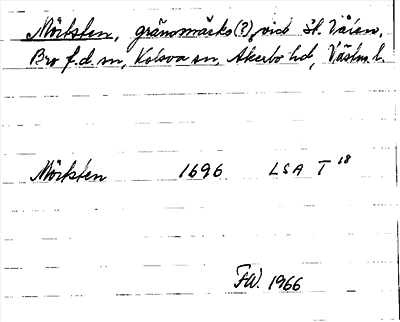 Mörksten, gränsmärke(?), vid St. Våren,
Bro f.d. sn, Kolsva sn, Åkerbo hd, Västm. l.
Mörksten 1696 LSA T 18
FW. 1966